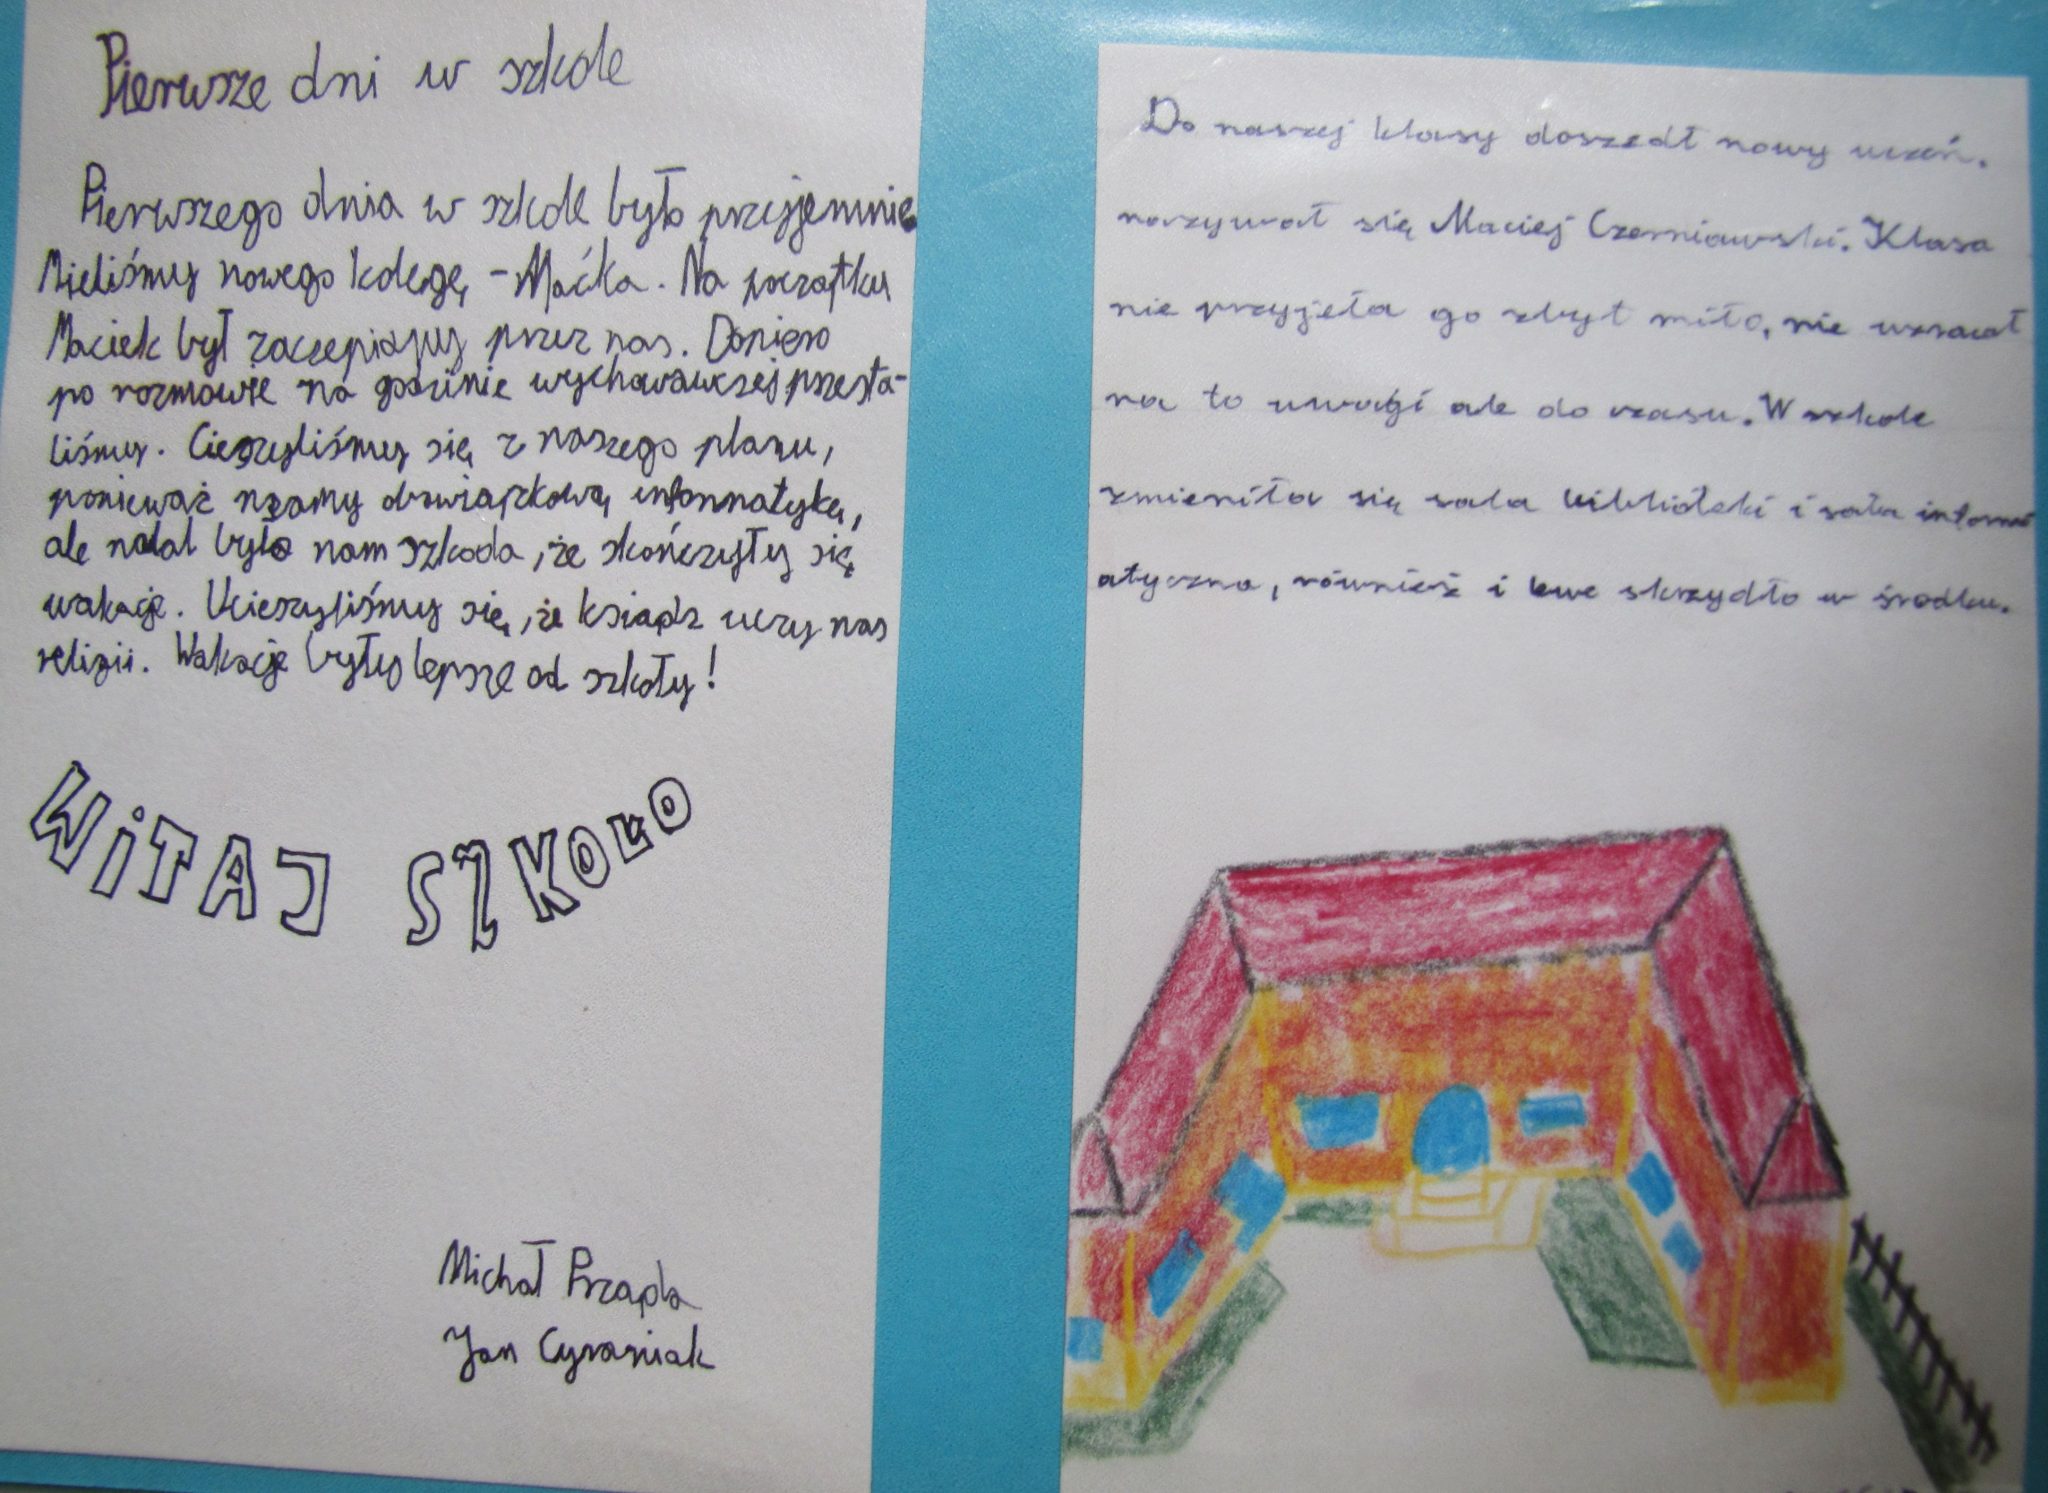 Pierwsze dni w szkole
Pierwszego dnia w szkole było przyjemnie.
Mieliśmy nowego kolegę, - Maćka. Na początku
Maciek był zaczepiany przez nas. Dopiero
po rozmowie na godzinie wychowawczej przesta-
liśmy. Cieszyliśmy się z naszego planu,
ponieważ mamy obowiązkową informatykę,
ale nadal było nam szkoda, że skończyły się
wakacje. Ucieszyliśmy się, że ksiądz uczy nas
religii. Wakacje były lepsze od szkoły!
WiTAJ SZKOŁO
Michał Przapla
Jan Cyraniak
Do naszej klasy doszedł nowy uczeń.
nazywał się Maciej Czerniawski. Klasa
nie przyjeła go zbyt miło, nie wzracał
na to uwagi ale do czasu. W szkole
zmieniła się sala biblioteki i sala inform
atyczna, również i lewe skrzydło w środku.